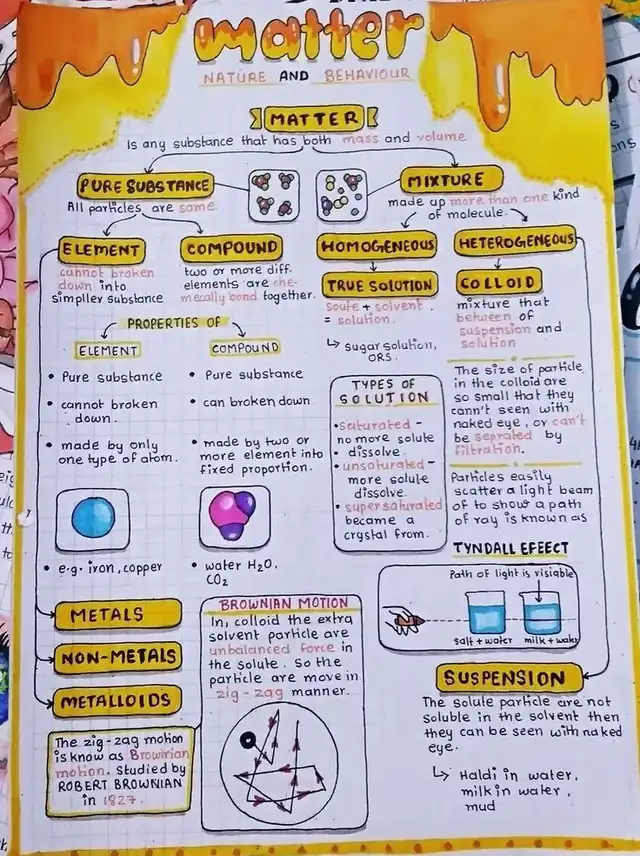 matter
NATURE AND BEHAVIOUR
MATTER
Is any substance that has both mass and volume
PURE SUBSTANCE
All particles are same.
MIXTURE
made up more than one kind
of molecule.
ELEMENT
cannot broken
down into
simpller substance
COMPOUND
two or more diff.
elements are che-
mecally bond together.
HOMOGENEOUS
TRUE SOLUTION
soute + solvent.
= solution.
↳ sugar solution,
ORS.
HETEROGENEOUS
COLLOID
mixture that
between of
suspension and
solution
PROPERTIES OF
ELEMENT
• Pure substance
• cannot broken
down.
• made by only
one type of atom.
• e.g. iron, copper
COMPOUND
• Pure substance
• can broken down
• made by two or
more element into
fixed proportion.
• water H₂O,
CO₂
TYPES OF
SOLUTION
• saturated -
no more solute
• dissolve.
• unsaturated -
more solute
dissolve.
• super saturated
became a
crystal from.
The size of particle
in the colloid are
so small that they
cann't seen with
naked eye, or can't
be seprated by
filtration.
Particles easily
scatter a light beam
of to show a path
of ray is known as
TYNDALL EFEECT
Path of light is visiable
salt + water
milk + wake
METALS
NON-METALS
METALLOIDS
The zig-zag motion
is know as Browinian
motion. Studied by
ROBERT BROWNIAN
in 1827.
BROWNIAN MOTION
In, colloid the extra
solvent particle are
unbalanced force in
the solute. So the
particle are move in
zig-zag manner.
SUSPENSION
The solute particle are not
soluble in the solvent then
they can be seen with naked
eye.
↳ Haldi in water,
milk in water,
mud